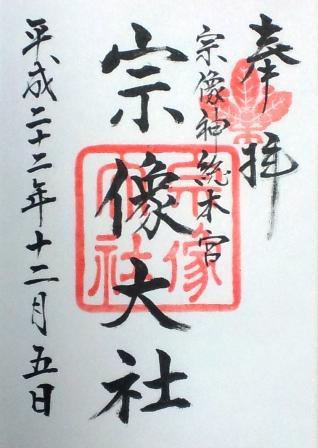 奉拝
宗像神総本宮
宗像大社
平成二十二年十二月五日
宗像
大社